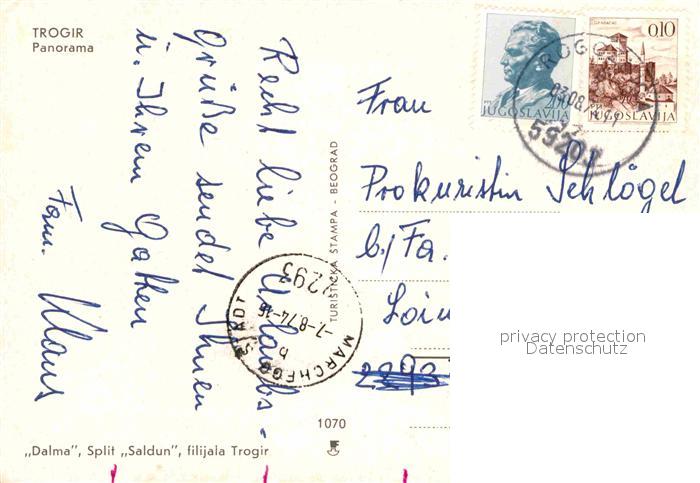 TROGIR
Panorama
Recht liebe Urlaubs-
grüße sendet Ihnen
u. Ihrem Gatten
Fam. Klaus
TURISTIČKA ŠTAMPA - BEOGRAD
JUGOSLAVIJA
0.10
JUGOSLAVIJA
Frau
Prokuristin Schlögel
b./Fa.
Loim
2293
MARCHEGG STADT
-7-8.74-16
b
2293
privacy protection
Datenschutz
1070
„Dalma", Split „Saldun", filijala Trogir